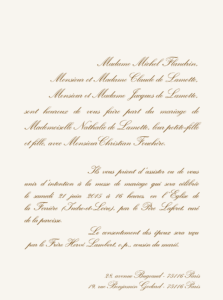 Madame Michel Flandrin,
Monsieur et Madame Claude de Lamotte,
Monsieur et Madame Jacques de Lamotte,
sont heureux de vous faire part du mariage de
Mademoiselle Nathalie de Lamotte, leur petite-fille
et fille, avec Monsieur Christian Fouchère.
Ils vous prient d'assister ou de vous
unir d'intention à la messe de mariage qui sera célébrée
le samedi 21 juin 2013 à 16 heures, en l'Église de
la Ferrière (Indre-et-Loire), par le Père Lefort, curé
de la paroisse.
Le consentement des époux sera reçu
par le Frère Hervé Lambert, o.p., cousin du marié.
28, avenue Bugeaud - 75116 Paris
18, rue Benjamin Godard - 75116 Paris